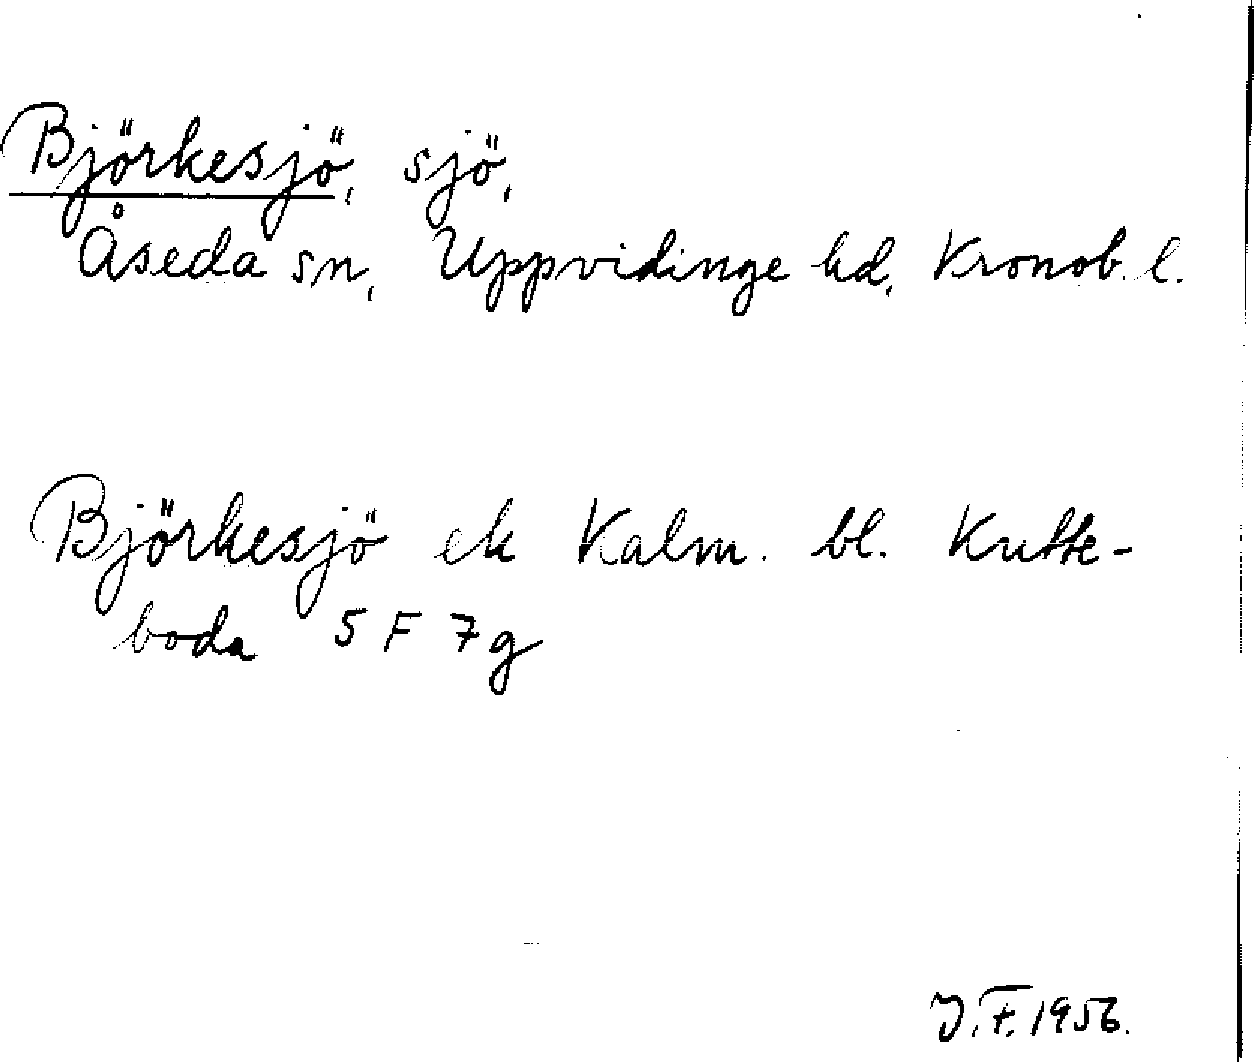 Björkesjö, sjö,
Åseda sn, Uppvidinge hd, Kronob. l.
Björkesjö ek Kalm. bl. Krutte-
boda 5 F 7g
J.F. 1956.